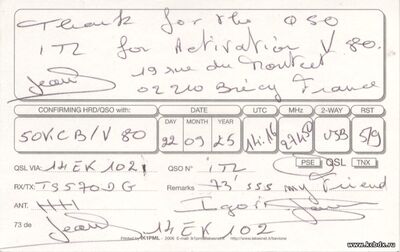 Thank for the QSO
ITL for Activation V 80.
Jean 19 rue du Montcet
02210 Brécy France
CONFIRMING HRD/QSO with: DATE UTC MHz 2-WAY RST
DAY MONTH YEAR
50VCB/V80 22 09 25 14:16 USB 5/9
QSL VIA: 14EK102 QSO N° ITL PSE QSL TNX
RX/TX: TS570DG Remarks 73' sss my Friend
ANT. Igor
73 de Jean 14EK102
Printed by IK1PML - 2006 E-mail
www.kcbdx.ru